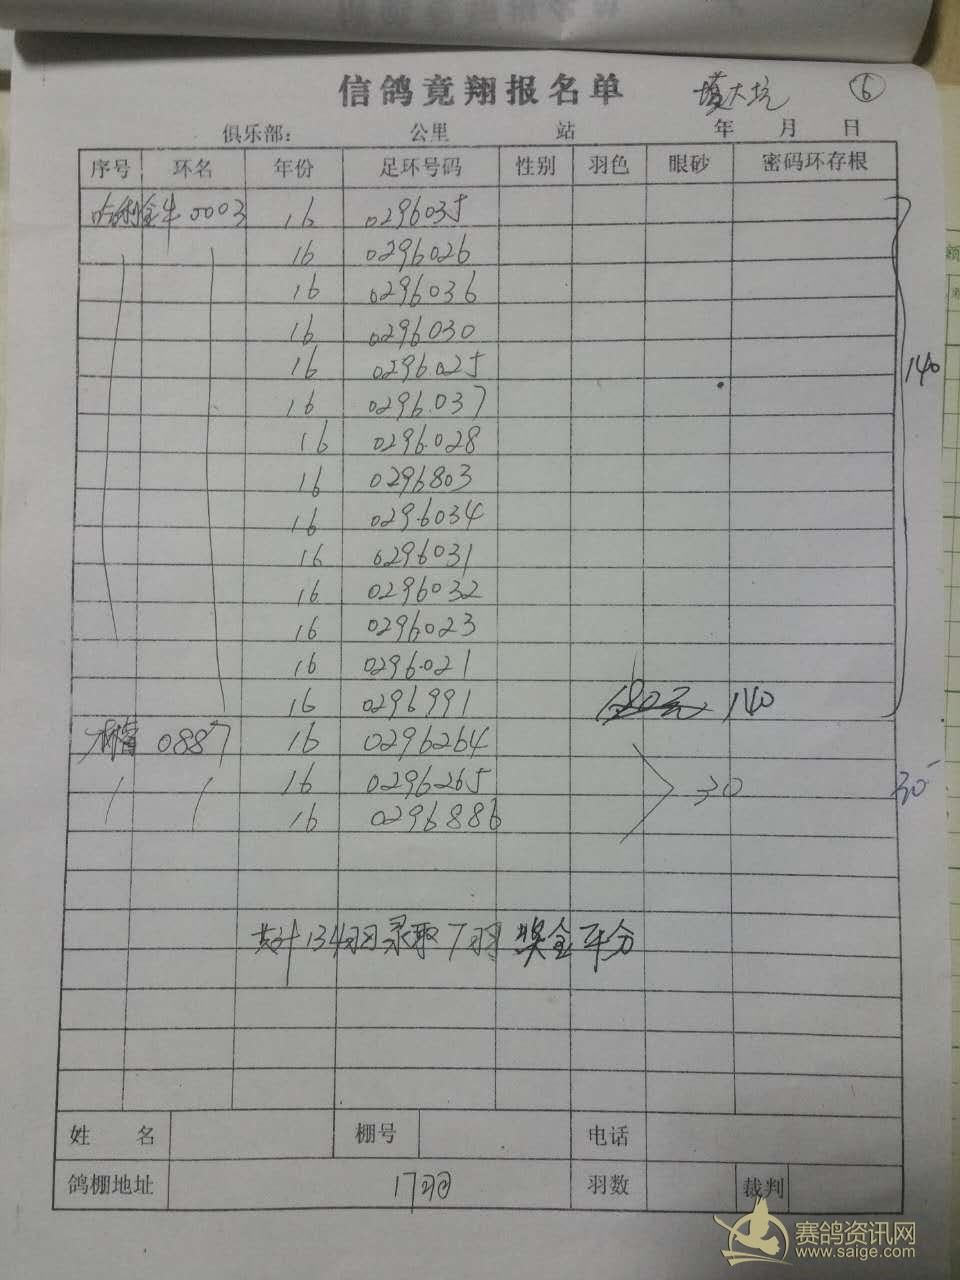 信鸽竟翔报名单 填大坑 ⑥
俱乐部: 公里 站 年 月 日
序号 环名 年份 足环号码 性别 羽色 眼砂 密码环存根
哈利金牛 0003 16 0296035
16 0296026
16 0296036
16 0296030
16 0296025
140
16 0296037
16 0296028
16 0296803
16 0296034
16 0296031
16 0296032
16 0296023
16 0296021
16 0296991 140
0887 16 0296264
16 0296265 30 30
16 0296886
共计134羽录取7羽奖金平分
姓名 棚号 电话
鸽棚地址 17羽 羽数 裁判
赛鸽资讯网
www.saige.com